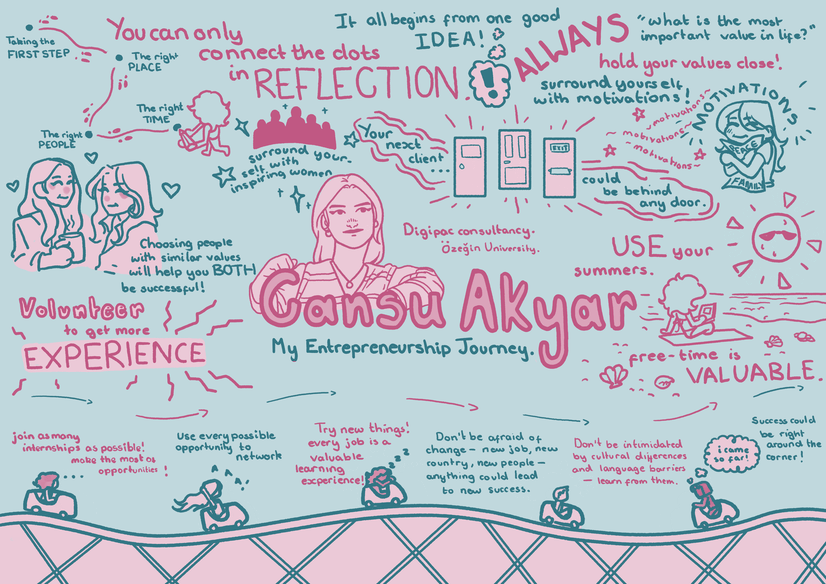 Taking the
FIRST STEP
The right
PLACE
The right
TIME
The right
PEOPLE
You can only
connect the dots
in REFLECTION.
It all begins from one good
IDEA!
!
ALWAYS
"what is the most
important value in life?"
hold your values close!
surround yourself
with motivations!
~motivations~
motivations~
~motivations~
MOTIVATIONS
PEACE
FAMILY
surround your-
self with
inspiring women
Your
next
client
...
could
be behind
any door.
Choosing people
with similar values
will help you BOTH
be successful!
Digipac consultancy.
Özeğin University.
USE your
summers.
Cansu Akyar
My Entrepreneurship Journey.
Volunteer
to get more
EXPERIENCE
free-time is
VALUABLE.
join as many
internships as possible!
make the most os
opportunities!
Use every possible
opportunity to
network
A A A
Try new things!
every job is a
valuable
learning
experience!
z z z
Don't be afraid of
change - new job, new
country, new people -
anything could lead
to new success.
Don't be intimidated
by cultural differences
and language barriers
- learn from them.
i came
so far!
Success could
be right
around the
corner!